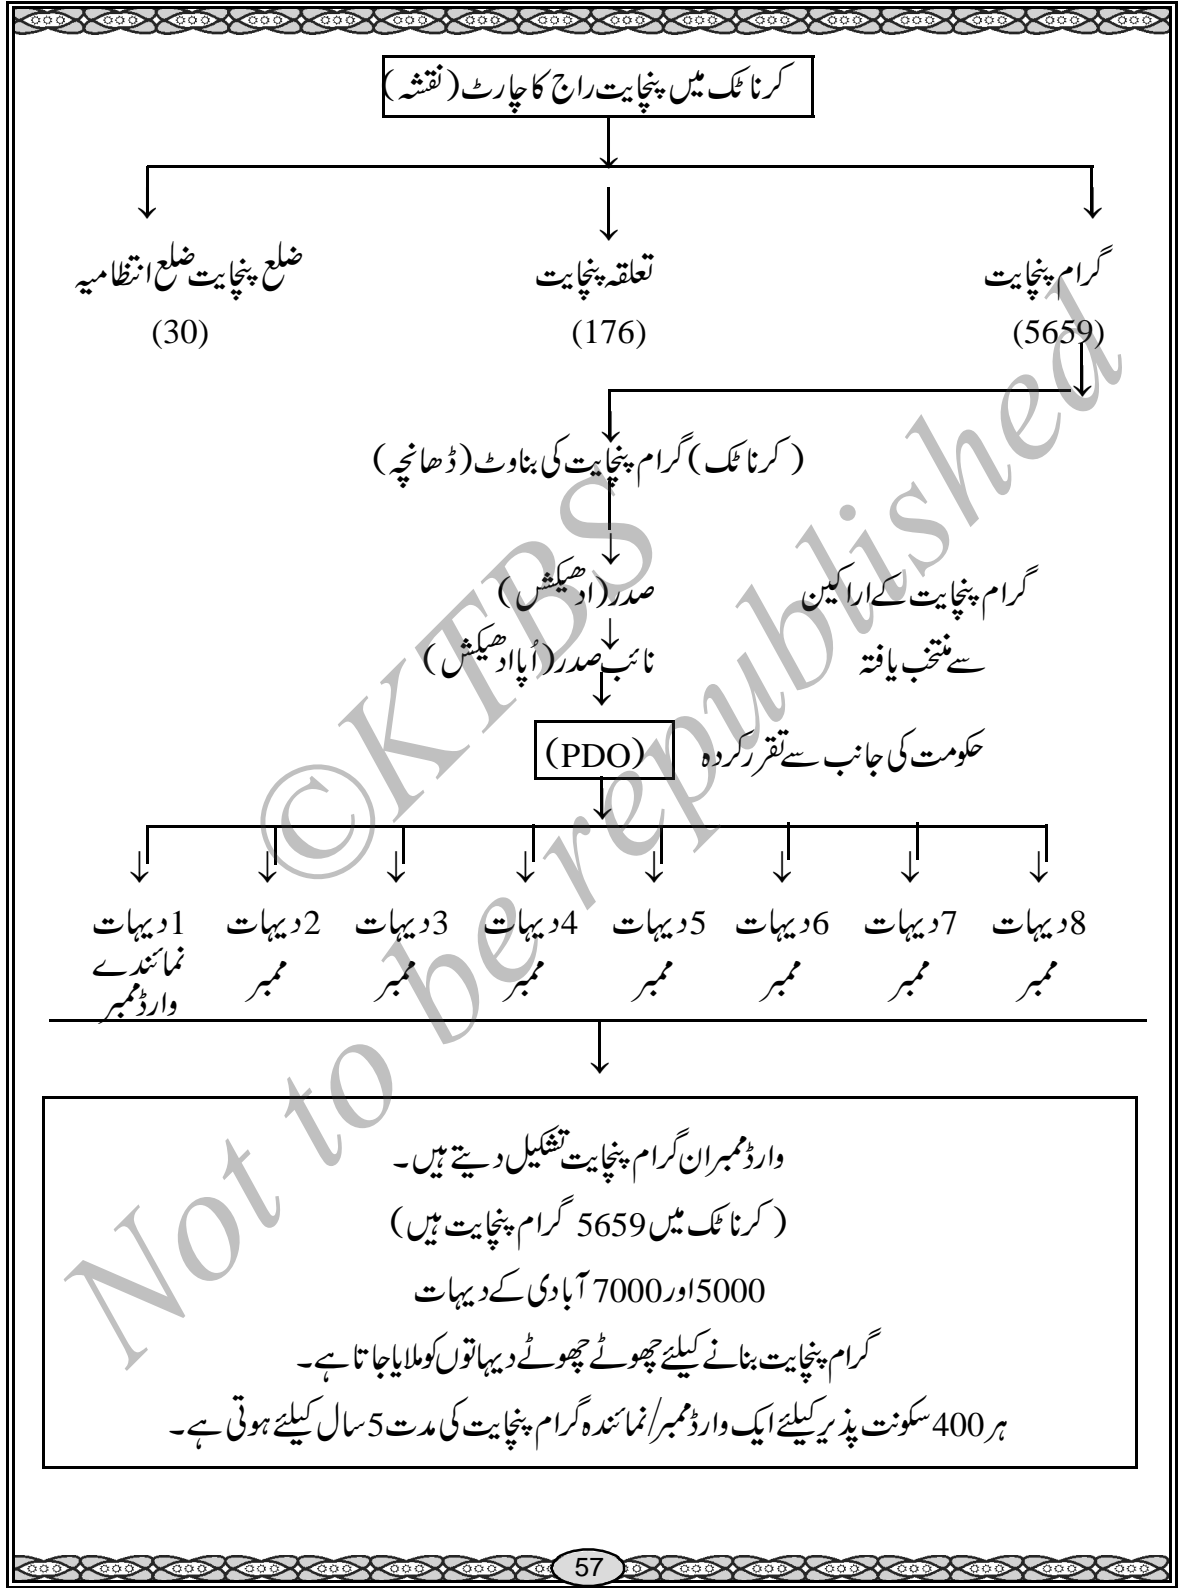 کرناٹک میں پنچایت راج کا چارٹ (نقشہ)
گرام پنچایت
تعلقہ پنچایت
ضلع پنچایت ضلع انتظامیہ
(5659)
(176)
(30)
(کرناٹک) گرام پنچایت کی بناوٹ (ڈھانچہ)
گرام پنچایت کے اراکین
صدر (ادھیکشش)
سے منتخب یافتہ
نائب صدر (اُپا ادھیکش)
حکومت کی جانب سے تقرر کردہ
(PDO)
8دیہات
7دیہات
6دیہات
5دیہات
4دیہات
3دیہات
2دیہات
1دیہات
ممبر
ممبر
ممبر
ممبر
ممبر
ممبر
ممبر
نمائندے
وارڈ ممبر
وارڈ ممبران گرام پنچایت تشکیل دیتے ہیں۔
(کرناٹک میں 5659 گرام پنچایت ہیں)
5000 اور 7000 آبادی کے دیہات
گرام پنچایت بنانے کیلئے چھوٹے چھوٹے دیہاتوں کو ملایا جاتا ہے۔
ہر 400 سکونت پذیر کیلئے ایک وارڈ ممبر/نمائندہ گرام پنچایت کی مدت 5 سال کیلئے ہوتی ہے۔
57
©KTBS
Not to be republished